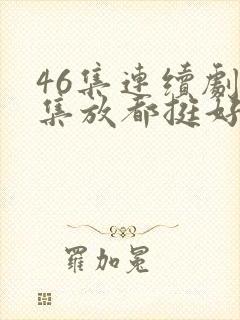 46集連續劇
集放都挺好
羅加冕